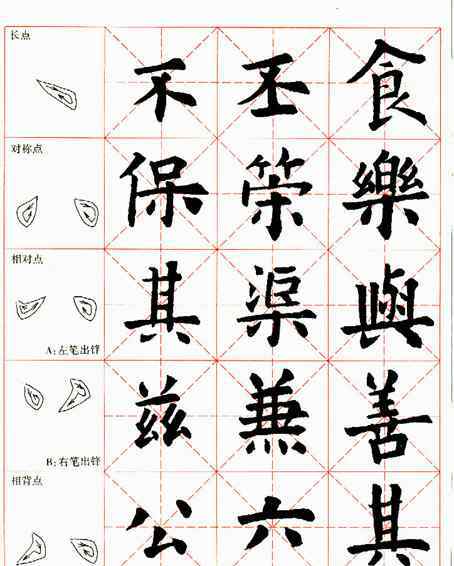 长点
不 丕 食
对称点
保 樂
相对点
其 渠
A:左笔出锋
兹 兼 善
B:右笔出锋
相背点
公 六 其